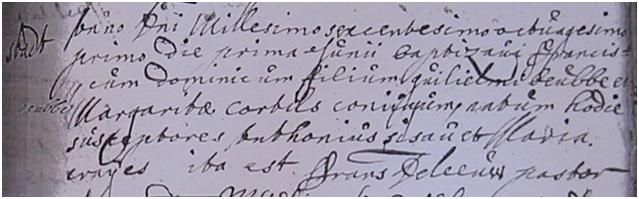 stadt Anno Dni Millesimo sexcentesimo octuagesimo
primo die prima Junii baptizavi Francis-
cum Dominicum filium guilielmi deubbe et
deubbe Margaritæ corbils coniugum, natum hodie
susceptores Anthonius sisau et Maria
crayes ita est Frans Deleeuw pastor